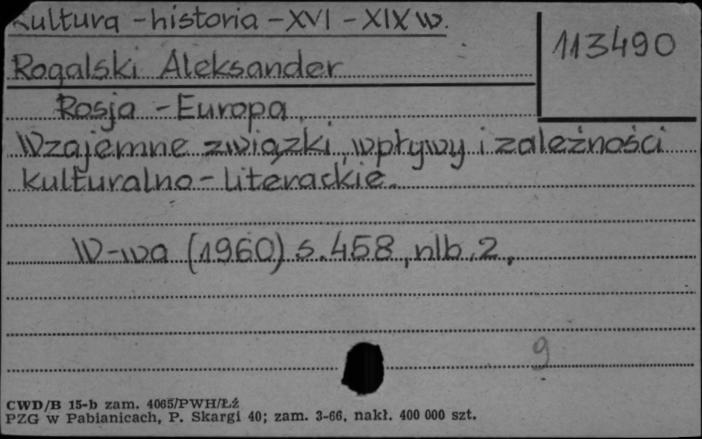 Kultura - historia - XVI - XIX w.
113490
Rogalski Aleksander
Rosja - Europa.
Wzajemne związki, wpływy i zależności
kulturalno - literackie.
W-wa (1960) s. 458, nlb. 2.
9
CWD/B 15-b zam. 4065/PWH/Łź
PZG w Pabianicach, P. Skargi 40; zam. 3-66, nakł. 400 000 szt.